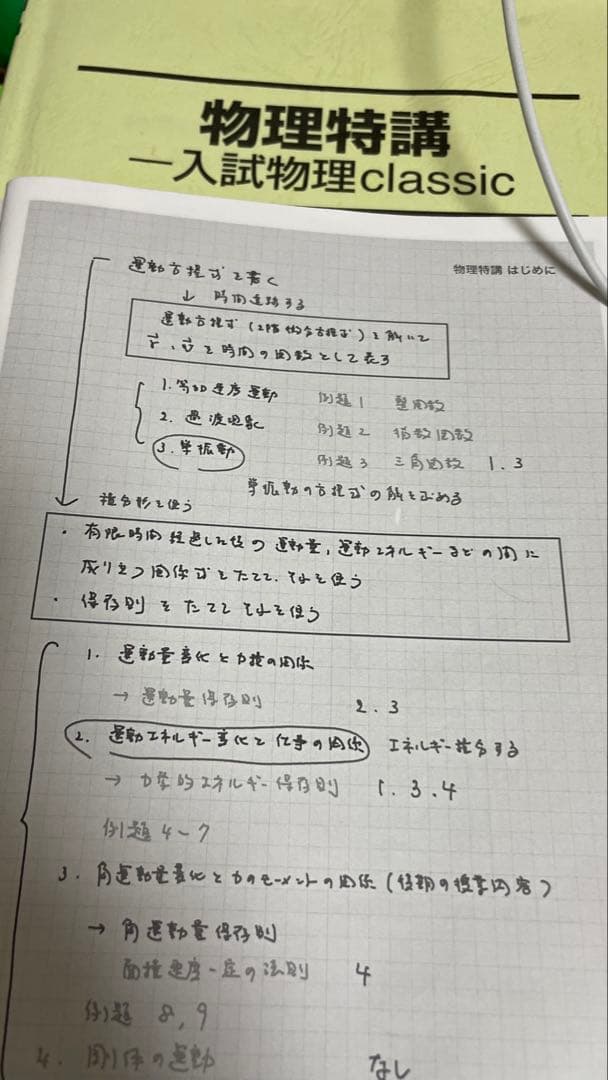 物理特講
—入試物理classic
物理特講 はじめに
運動方程式を書く
↓ 時間追跡する
運動方程式(2階微分方程式)を解いて
r, vを時間の関数として表る
1. 等加速度運動 例題1 整関数
2. 過渡現象 例題2 指数関数
3. 単振動 例題3 三角関数 1.3
単振動の方程式の解を求める
積分形を使う
・有限時間経過した後の運動量,運動エネルギーなどの間に
成り立つ関係式をたてて、それを使う
・保存則をたててそれを使う
1. 運動量変化と力積の関係
→ 運動量保存則 2.3
2. 運動エネルギー変化と仕事の関係 エネルギー積分する
→ 力学的エネルギー保存則 1.3.4
例題4~7
3. 角運動量変化と力のモーメントの関係(後期の授業内容)
→ 角運動量保存則
面積速度一定の法則 4
例題 8,9
4. 剛体の運動 なし